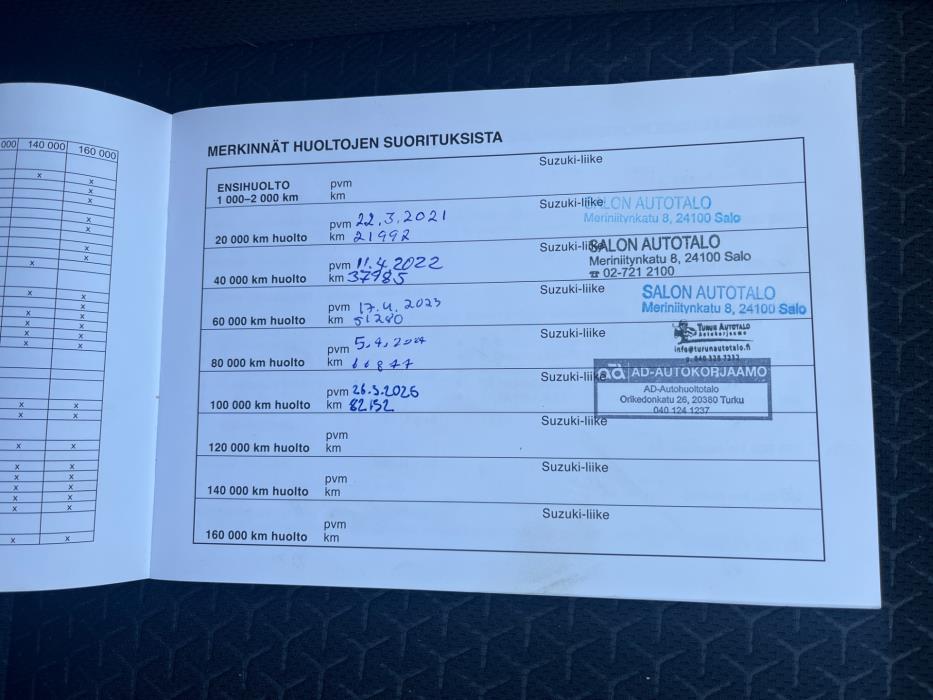 000 140 000 160 000
MERKINNÄT HUOLTOJEN SUORITUKSISTA
ENSIHUOLTO pvm Suzuki-liike
1 000–2 000 km km
pvm 22.3.2021 Suzuki-liike SALON AUTOTALO
20 000 km huolto km 21992 Meriniitynkatu 8, 24100 Salo
pvm 11.4.2022 Suzuki-liike SALON AUTOTALO
40 000 km huolto km 37985 Meriniitynkatu 8, 24100 Salo
☎ 02-721 2100
pvm 17.4.2023 Suzuki-liike SALON AUTOTALO
60 000 km huolto km 51280 Meriniitynkatu 8, 24100 Salo
pvm 5.4.2024 Suzuki-liike TURUN AUTOTALO
Autokorjaamo
info@turunautotalo.fi
80 000 km huolto km 66877
pvm 26.3.2026 Suzuki-liike aä AD-AUTOKORJAAMO
AD-Autohuoltotalo
100 000 km huolto km 82152 Orikedonkatu 26, 20380 Turku
040 124 1237
pvm Suzuki-liike
120 000 km huolto km
pvm Suzuki-liike
140 000 km huolto km
pvm Suzuki-liike
160 000 km huolto km